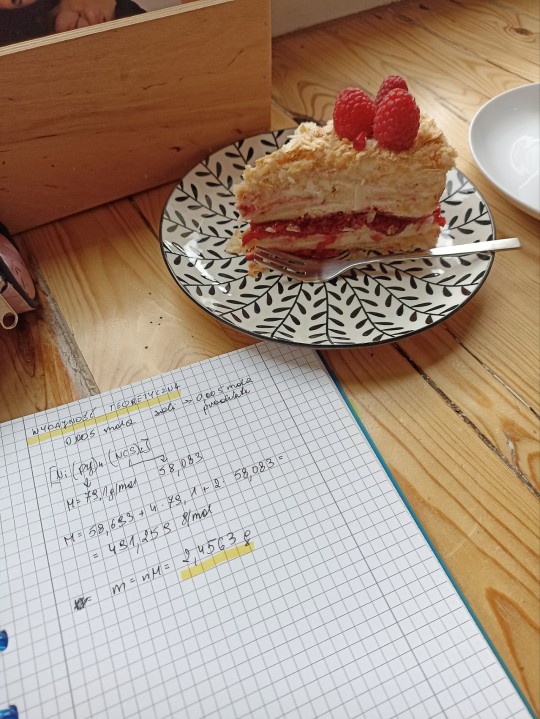 WYDAJNOŚĆ TEORETYCZNA
0,005 mola soli → 0,005 mola
produktu
[Ni(py)₄(NCS)₂]
M = 79,1 g/mol 58,083
M = 58,693 + 4 · 79,1 + 2 · 58,083 =
= 491,259 g/mol
m = nM = 2,4563 g